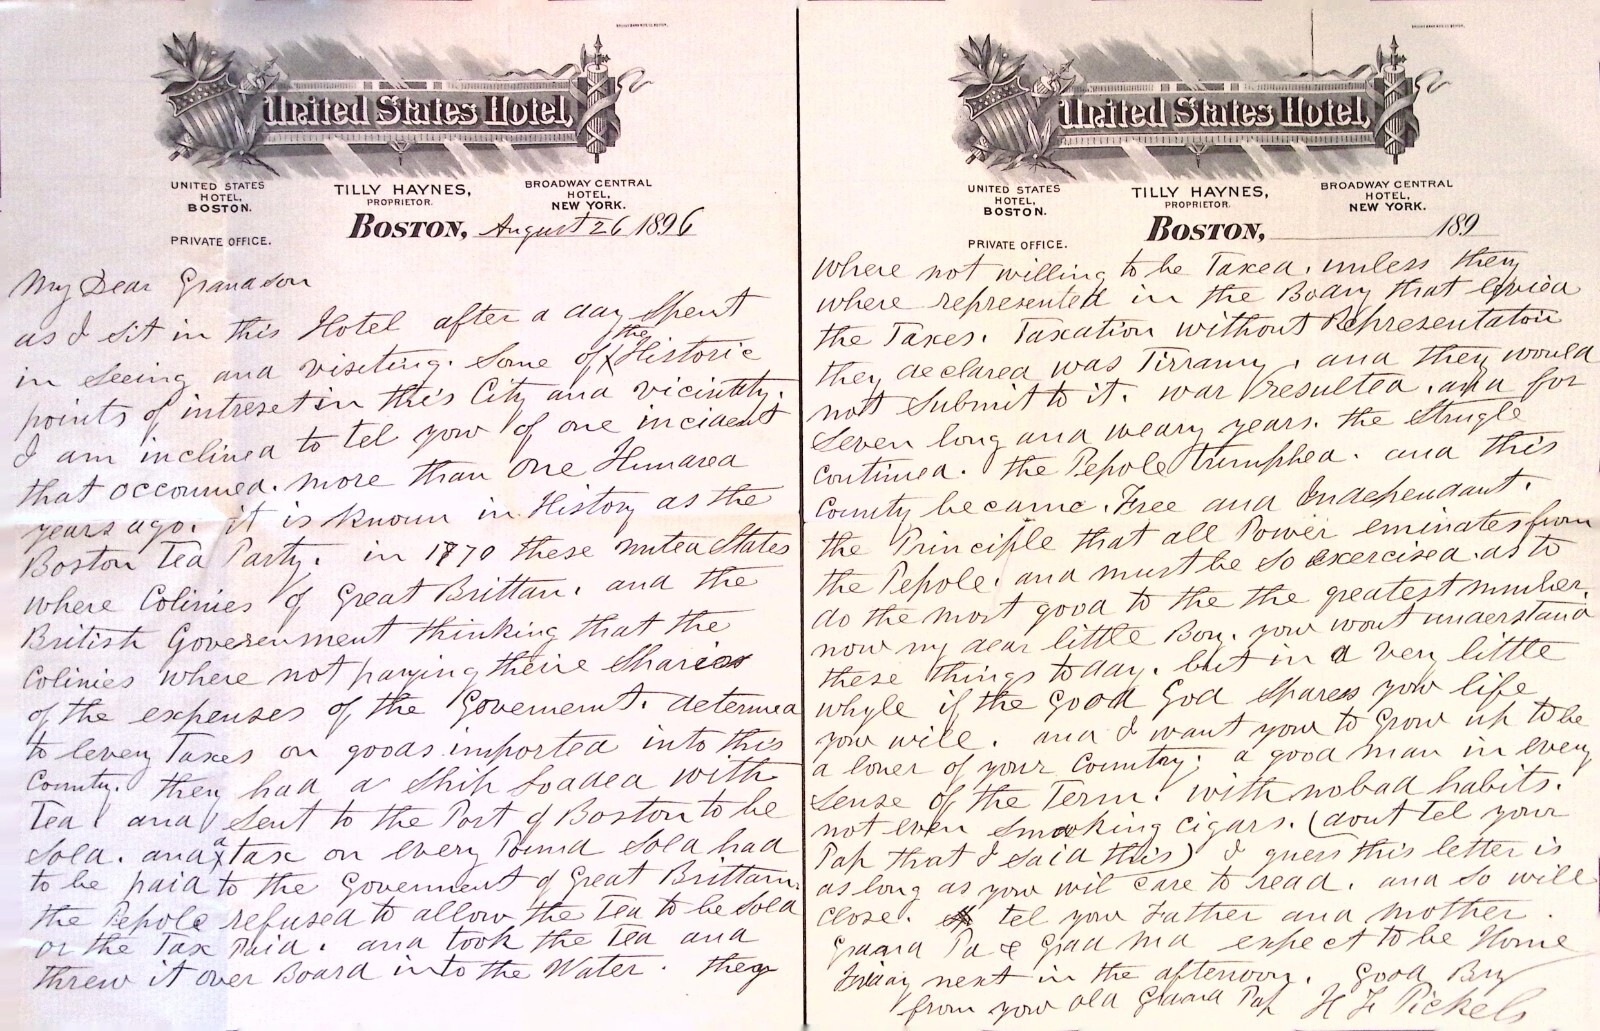 United States Hotel,
UNITED STATES
HOTEL,
BOSTON.
TILLY HAYNES,
PROPRIETOR.
BROADWAY CENTRAL
HOTEL,
NEW YORK.
PRIVATE OFFICE.
BOSTON, August 26 1896
My Dear Grandson
as I sit in this Hotel after a day spent
in seeing and visiting. some of the Historic
points of intreset in this City and vicinity.
I am inclined to tel yow of one incident
that occourred. more than one Hundred
years ago. it is known in History as the
Boston Tea Party. in 1770 these united States
where Colinies of Great Brittan. and the
British Goverenment thinking that the
Colinies where not paying theire Shares
of the expenses of the Goverment. determed
to levey Taxes on goods imported into this
County. they had a ship Loaded with
Tea and sent to the Port of Boston to be
sold. and a tax on every Pound sold had
to be paid to the Goverment of Great Brittan.
the Pepole refused to allow the Tea to be sold
or the Tax Paid. and took the Tea and
threw it over Board into the Water. they
United States Hotel,
UNITED STATES
HOTEL,
BOSTON.
TILLY HAYNES,
PROPRIETOR.
BROADWAY CENTRAL
HOTEL,
NEW YORK.
PRIVATE OFFICE.
BOSTON, 189
where not willing to be Taxed. unless they
where represented in the Boddy that levied
the Taxes. Taxation without Representatoin
they declared was Tirrany. and they would
not submit to it. war resulted. and for
seven long and weary years. the strugle
continued. the Pepole trumphed. and this
County became. Free and Independant.
the Principle that all Power eminates from
the Pepole. and must be so exercised. as to
do the most good to the the greatest number.
now my dear little Boy. yow wont understand
these things today. but in a very little
whyle if the Good God spares yow life
yow will. and I want yow to Grow up to be
a lover of your Country. a good man in every
sense of the Term. with no bad habits.
not even smoking cigars. (dont tel your
Pap that I said this) I guess this letter is
as long as yow wil care to read. and so will
close. tel yow Father and mother.
Grand Pa & Grad Ma expect to be Home
Friday next in the afternoon. Good By
from yow old Grand Pap H F Pickels